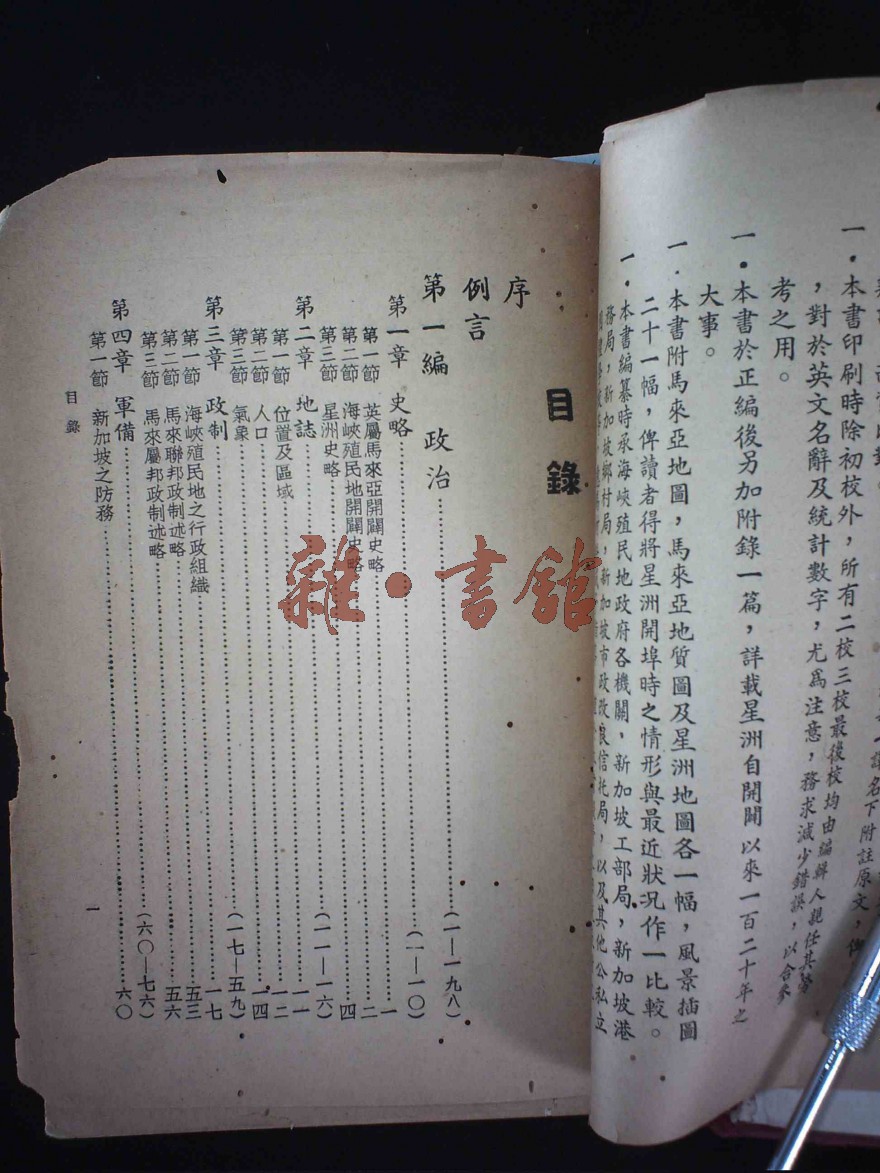 譯名下附註原文，俾
一．本書印刷時除初校外，所有二校三校最後校均由編輯人親任其勞
，對於英文名辭及統計數字，尤爲注意，務求減少錯誤，以合參
考之用。
一．本書於正編後另加附錄一篇，詳載星洲自開闢以來一百二十年之
大事。
一．本書附馬來亞地圖，馬來亞地質圖及星洲地圖各一幅，風景插圖
二十一幅，俾讀者得將星洲開埠時之情形與最近狀况作一比較。
一．本書編纂時承海峽殖民地政府各機關，新加坡工部局，新加坡港
務局，新加坡鄉村局，新加坡市政改良信托局，以及其他公私立
目錄
序
例言
第一編 政治……(一—一九八)
第一章 史略……(一—一〇)
第一節 英屬馬來亞開闢史略……一
第二節 海峽殖民地開闢史略……二
第三節 星洲史略……四
第二章 地誌……(一一—一六)
第一節 位置及區域……一一
第二節 人口……一二
第三節 氣象……一四
第三章 政制……(一七—五九)
第一節 海峽殖民地之行政組織……一七
第二節 馬來聯邦政制述略……五三
第三節 馬來屬邦政制述略……五六
第四章 軍備……(六〇—七六)
第一節 新加坡之防務……六〇
目錄
一
雜·書館